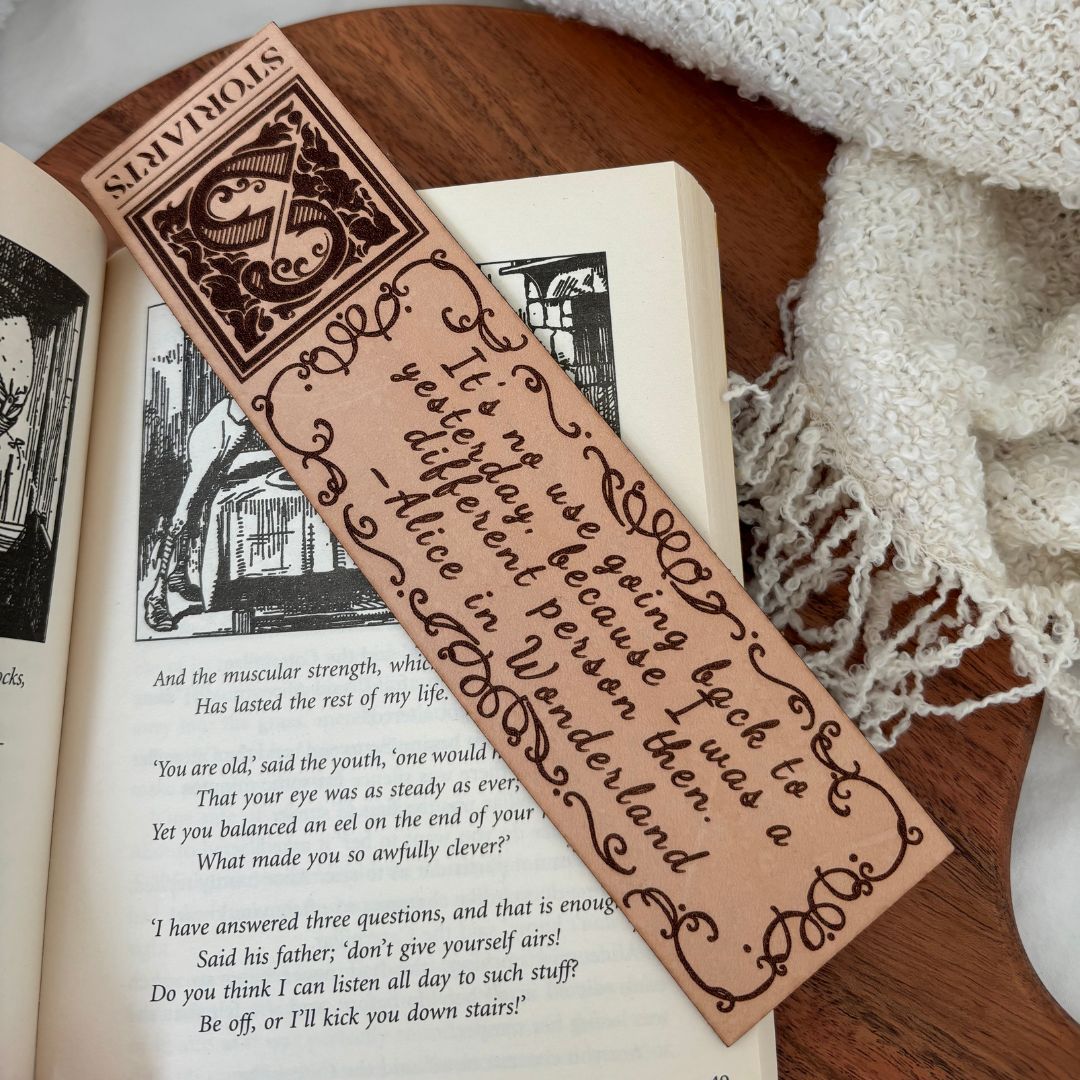 STORIARTS
S
It's no use going back to
yesterday, because I was a
different person then.
-Alice in Wonderland
And the muscular strength,
Has lasted the rest of my life.
'You are old,' said the youth, 'one would
That your eye was as steady as ever,
Yet you balanced an eel on the end of your
What made you so awfully clever?'
'I have answered three questions, and that is enough
Said his father; 'don't give yourself airs!
Do you think I can listen all day to such stuff?
Be off, or I'll kick you down stairs!'